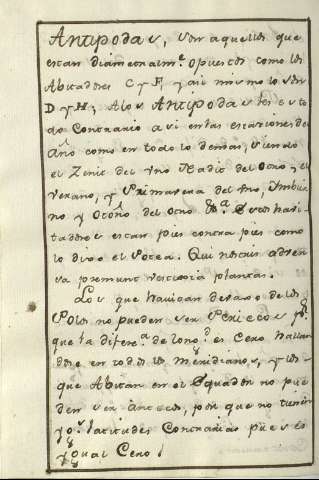 Antipodas, son aquellos que
estan diametralmte. opuestos como los
Abitadores C y F, y asi mismo lo son
D y H; A los Antipodas les es to
do Contrario asi en las estaciones del
Año como en todo lo demas, siendo
el Zenit del Uno Nadir del Otro, y el
Verano, y Primavera del Uno, Imbier
no y Otoño del Otro
tadores estan pies contra pies como
lo dixo el Poeta. Qui nostris adver
sa premunt vestigia plantas.
Los que navigan devaxo de los
Polos no pueden ser Periecos pr.
que la diferena. de Longd. es Cero hallan
dose en todos los Meridianos, y los
que Abitan en el Equador no pue
den ser Antecos, por que no tienen
Latitudes Contrarias pues es
ygual Cero